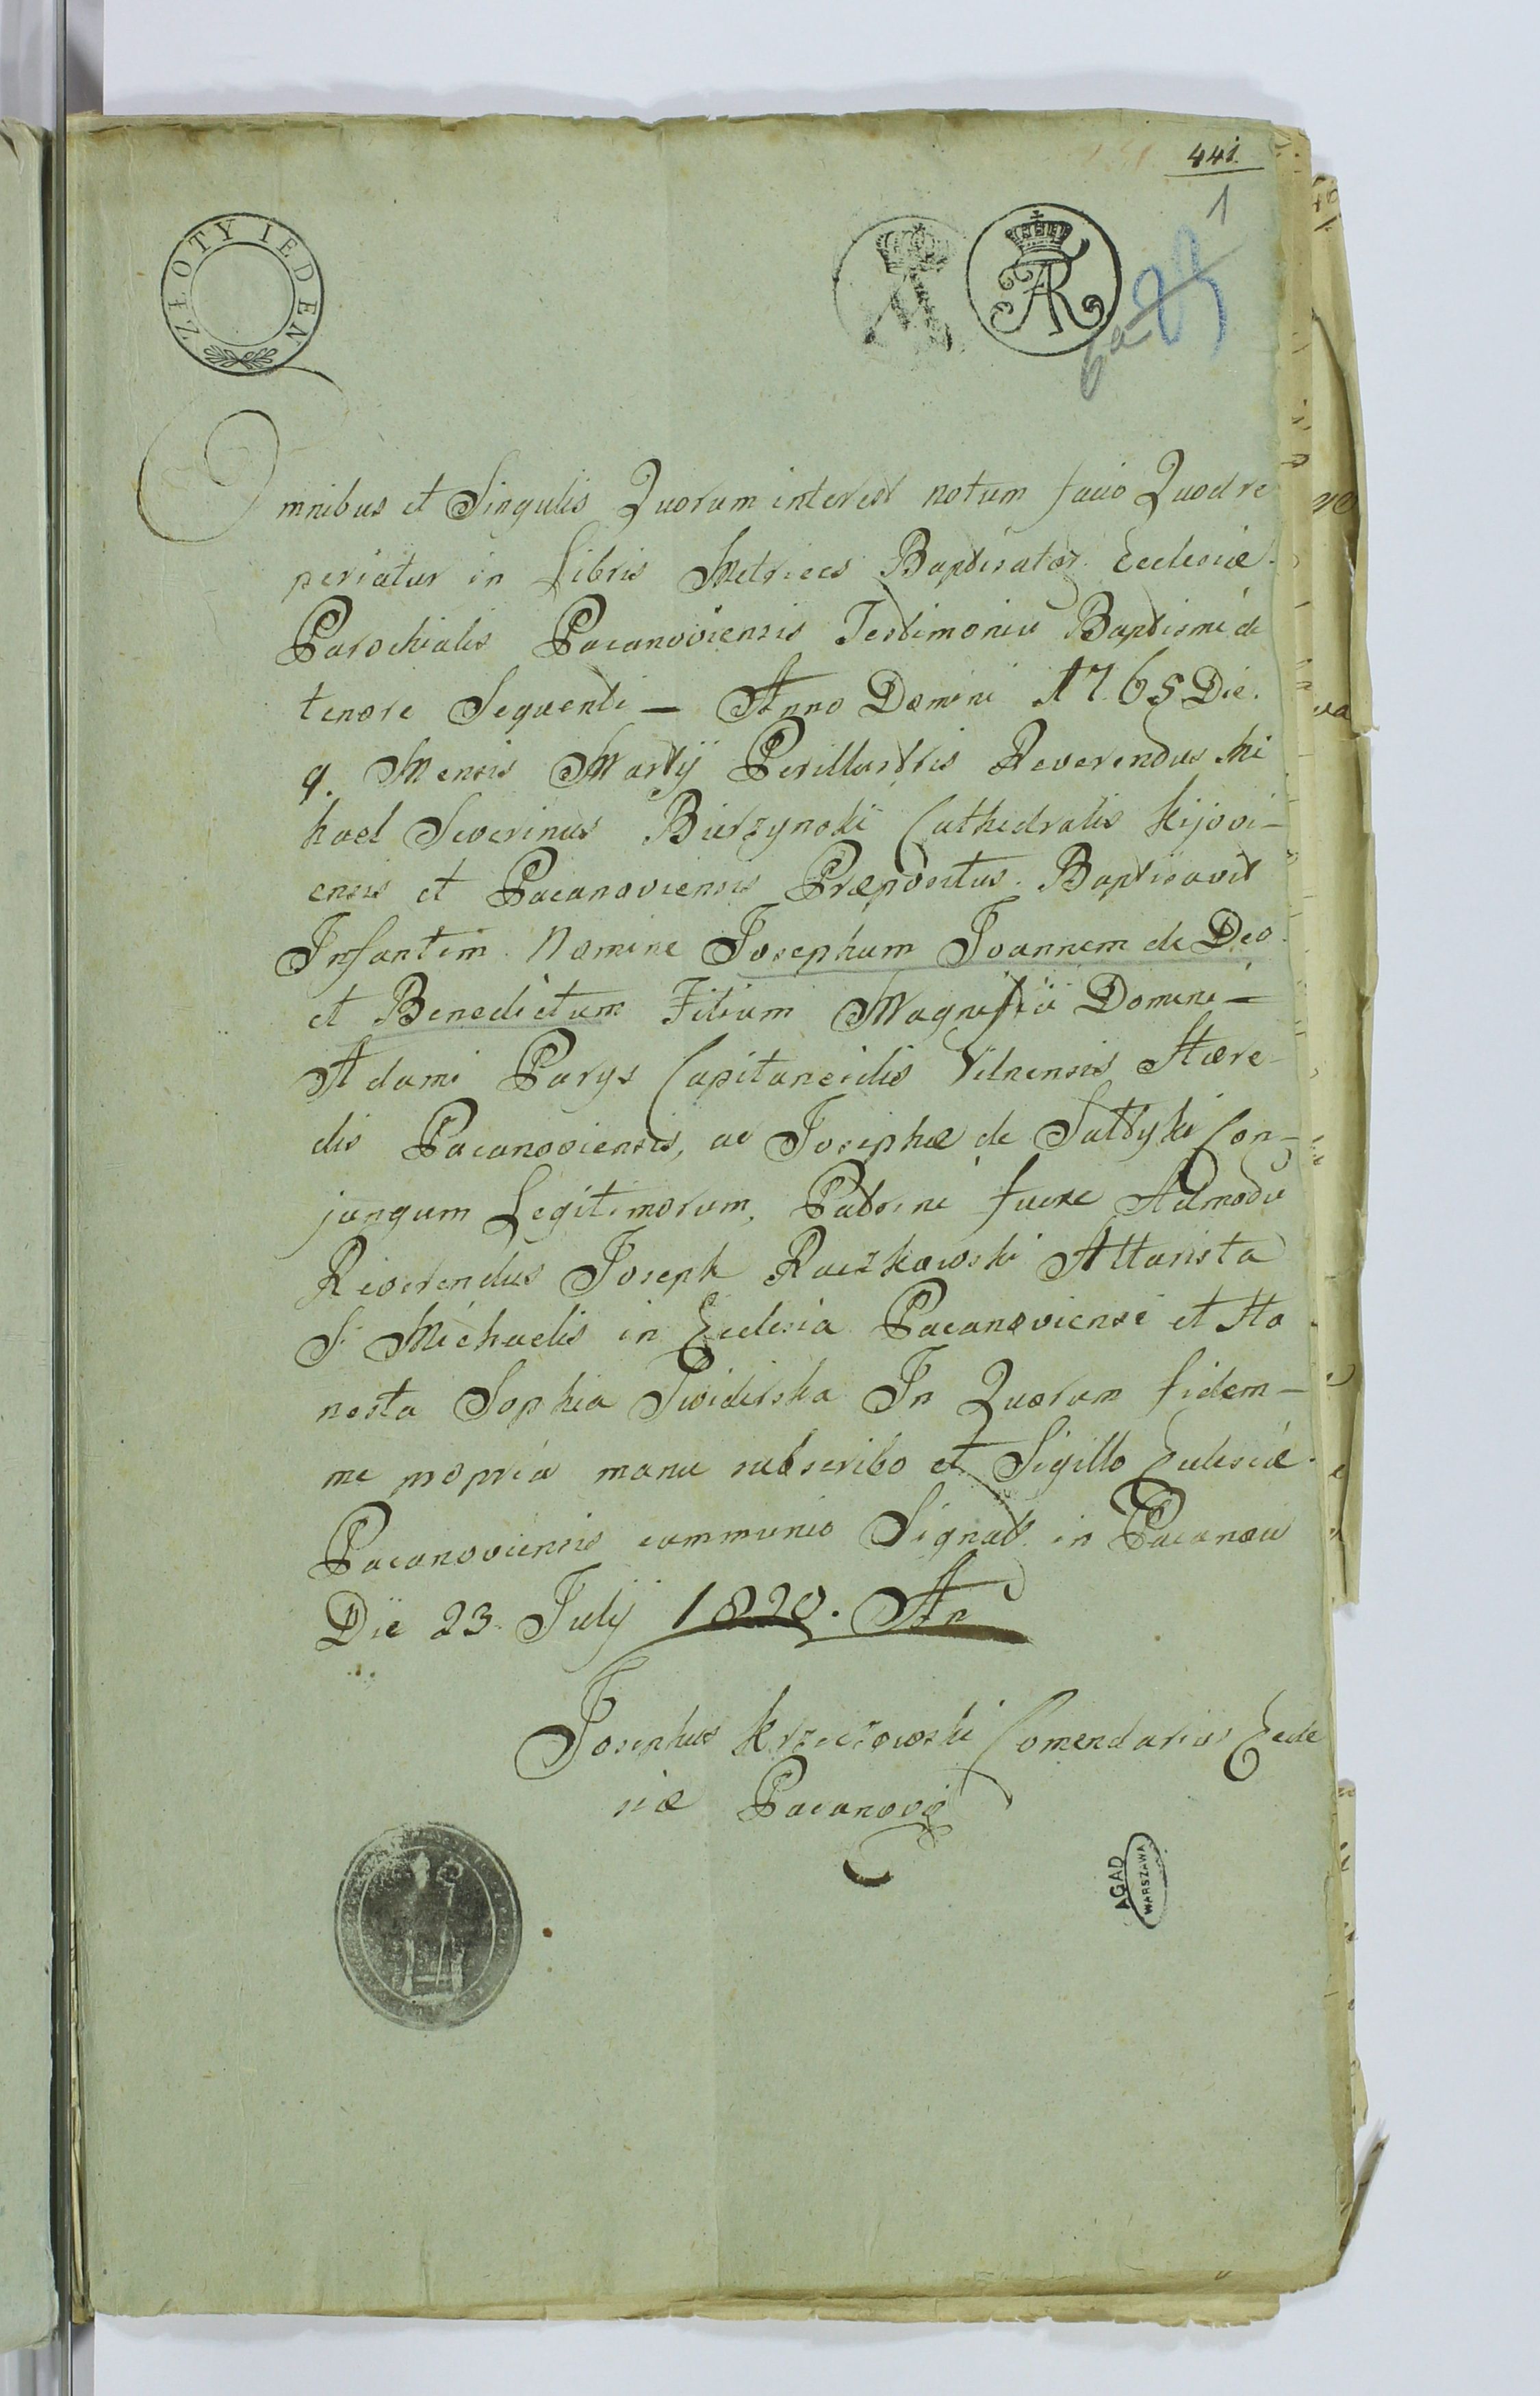 441.
1
ZŁOTY IEDEN
AR
6a
Omnibus et Singulis Quorum interest notum facio Quod re
periatur in Libris Metrices Baptisator. Ecclesiæ
Parochialis Pacanoviensis Testimoniu Baptismi de
tenore Sequenti — Anno Domini 1765 Die.
9. Mensis Martÿ Perillustris Reverendus Mi
hael Severinus Bierzynski Cathedralis Kijovi-
ensis et Pacanoviensis Præpositus. Baptisavit
Infantem Nomine Josephum Joannem de Deo
et Benedictum Filium Magnificii Domini —
Adami Parys Capitaneidis Vilnensis Hære-
dis Pacanoviensis, ac Josephæ de Sałtyki Con-
jungum Legitimorum, Patrini fuere Admodu
Reverendus Joseph Raczkowski Altarista
S. Michaelis in Ecclesia Pacanoviensi et Ho
nesta Sophia Swiderska In Quorum fidem —
me propria manu subscribo et Sigillo Eclesiæ
Pacanoviensis communio Signat. in Pacanow
Die 23. Julÿ 1820. An
Josephus Krzeczowski Comendarius Eccle
siæ Pacanovi
AGAD
WARSZAWA